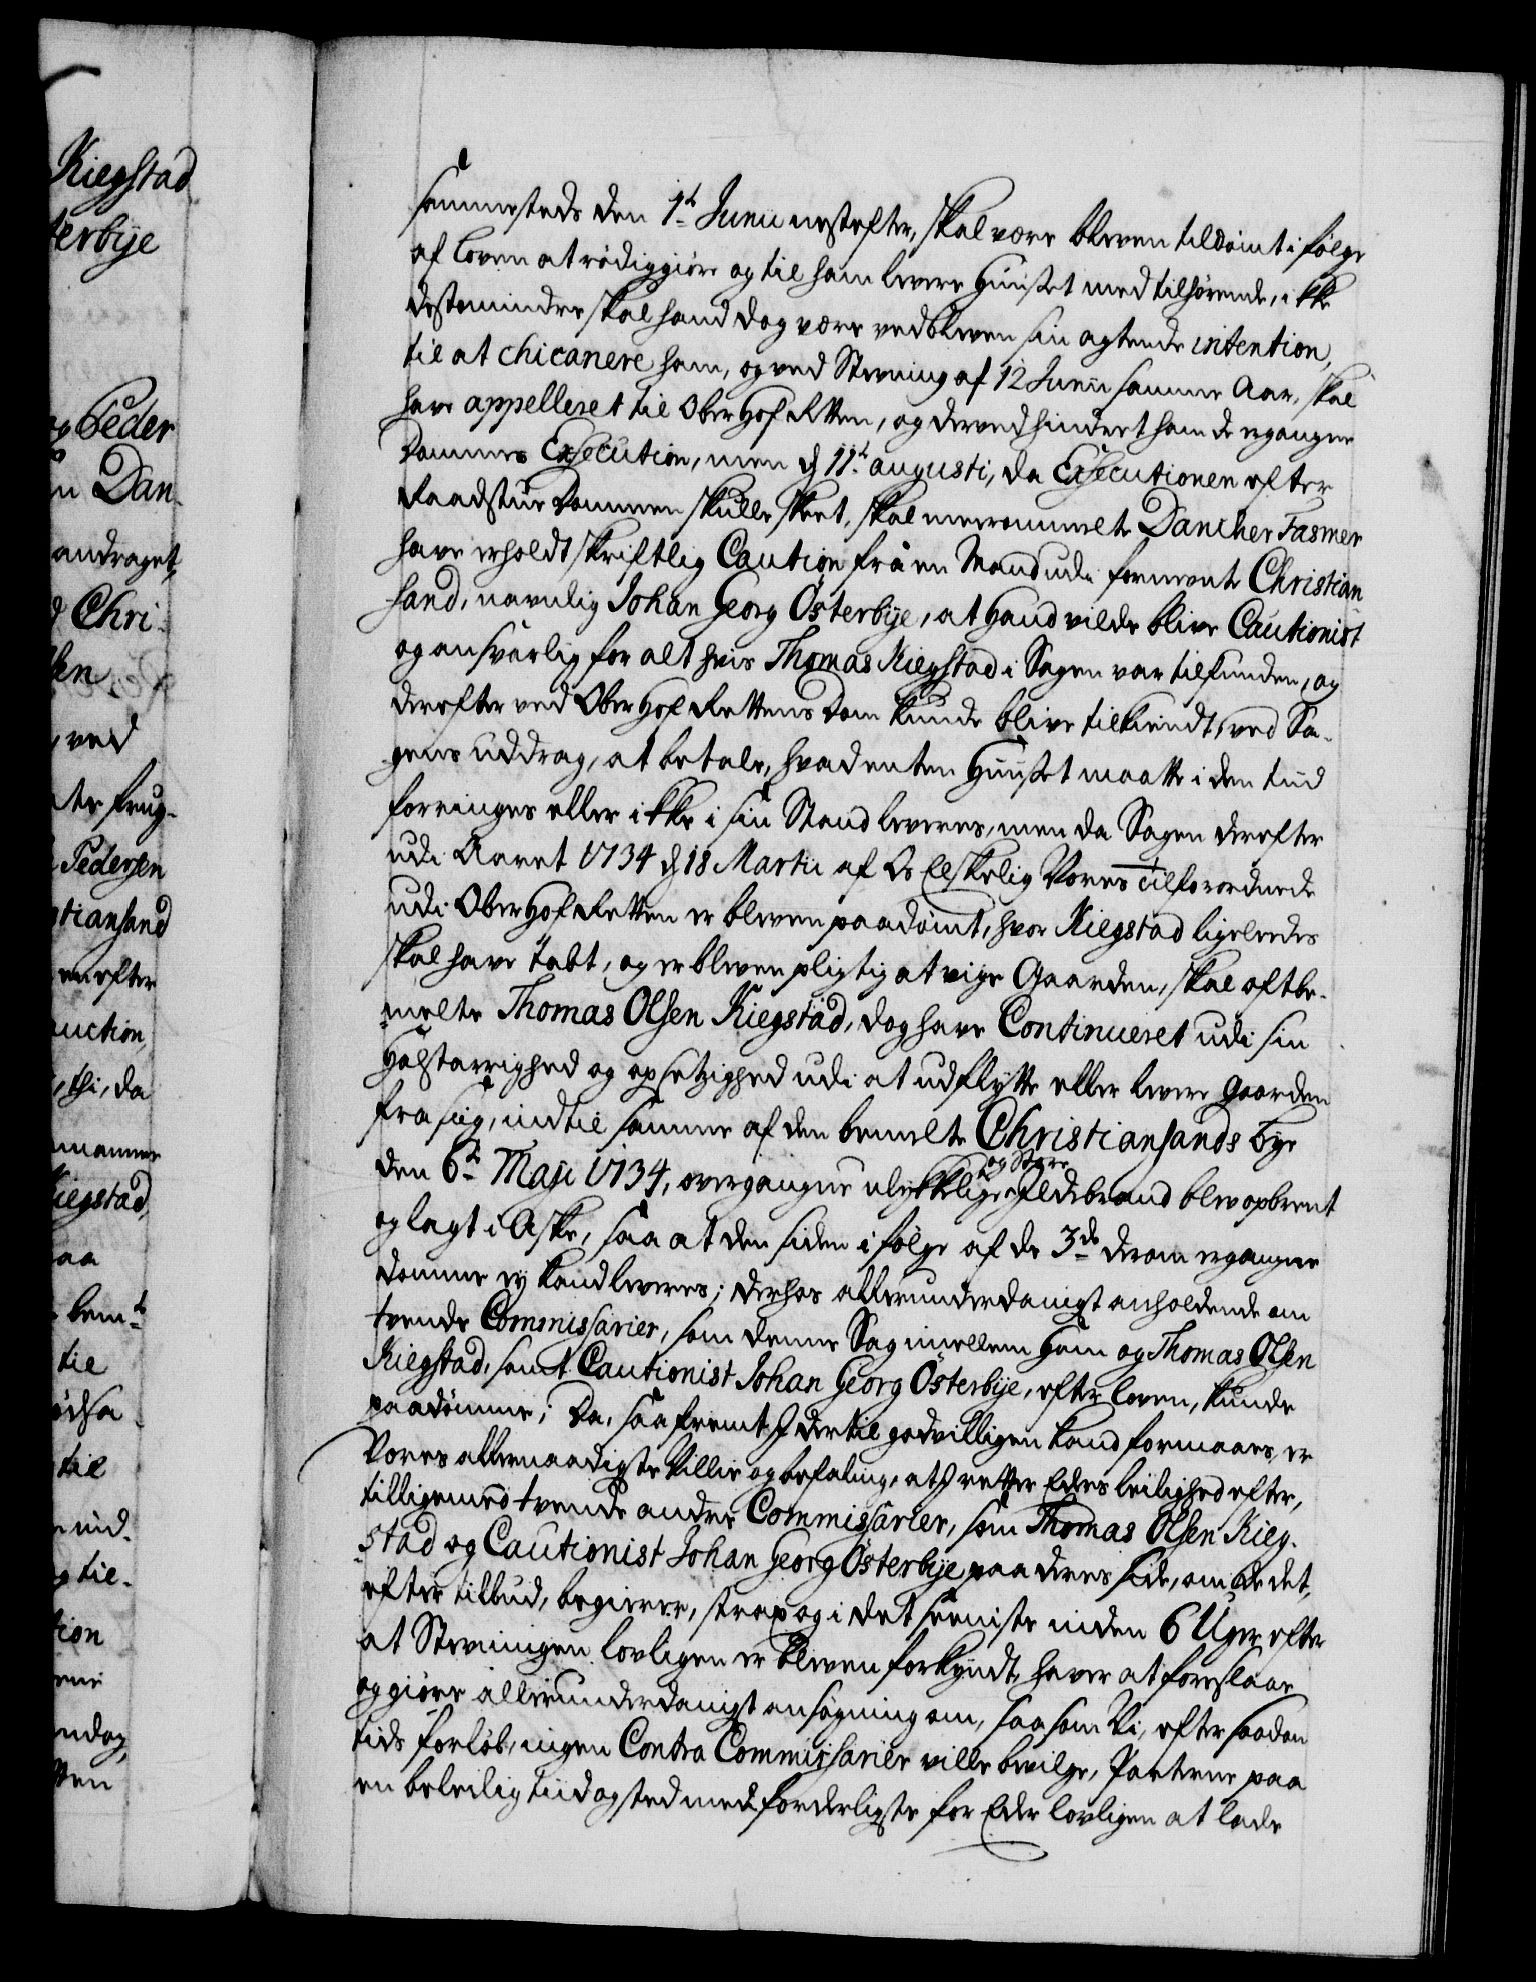 Kiegstad
terbÿe
og Peder
n Dan-
andraget,
d Chri-
sen
, ved
ate frug-
Pedersen
stiansand
en efter
auction,
, thi, da
mamme
Kiegstad,
aa
bem.te
til
ødsa
til
ind-
og til-
tion
eni
endog,
tten
sammesteds den 1.te Junii nestefter, skal være bleven tildömt i fölge
af loven at rödiggiöre og til ham levere Huuset med tilhörende, ikke
destomindre skal hand dog være vedbleven sin agtende intention,
til at chicanere ham, og ved Stevning af 12 Junii samme Aar, skal
have appelleret til OberHofRetten, og derved hindret ham de ergangne
Dommes Execution, men d. 11.te augusti, da Executionen efter
Raadstue Dommen skulle skeet, skal meerommelte Dancher Fasmer
have erholdt skriftlig Caution frå en Mand udi formente Christian-
sand, navnlig Johan Georg Österbÿe, at Hand vilde blive Cautionist
og ansvarlig for alt hvis Thomas Kiegstad i Sagen var tilfunden, og
derefter ved OberHofRettens Dom kunde blive tilkiendt, ved Sa-
gens uddrag, at betale, hvad enten Huuset maatte i den tiid
forringes eller ikke i sin Stand leveres, men da Sagen derefter
udi Aaret 1734 d. 18 Martii af Os Elskelig Vores tilforordnede
udi OberHofRetten er bleven paadömt, hvor Kiegstad ligeleedes
skal have tabt, og er bleven pligtig at vige Gaarden, skal oftbe-
melte Thomas Olsen Kiegstad, dog have Continueret udi sin
Halstarrighed og opsetzighed udi at udflÿtte eller levere gaarden
fra sig, indtil samme af den bemelte Christiansands bÿe
den 6.te Maji 1734, overgangne ulÿkkelige og Store Ildebrand blev opbrent
og lagt i Aske, saa at den siden i fölge af de 3.de derom ergangne
domme ej kand leveres; derhos allerunderdanigst anholdende om
tvende Commissarier, som denne Sag imellem ham og Thomas Olsen
Kiegstad, samt Cautionist Johan Georg Österbÿe, efter loven, kunde
paadömme; Da, saafremt I dertil godvilligen kand formaaes, er
Vores allernaadigste Villie og befaling, at I retter Eders leilighed efter,
tilligemed tvende andre Commissarier, som Thomas Olsen Kieg-
stad og Cautionist Johan Georg Österbÿe paa deres side, om de det,
efter tilbud, begierer, strax og i det seeniste inden 6 Uger efter
at Stevningen lovligen er bleven forkÿndt, haver at foreslaae
og giöre allerunderdanigst ansögning om, saasom Vi, efter saadan
tids forlöb, ingen Contra Commissarier ville bevilge, Parterne paa
en beleilig tiid og sted med forderligste for Eder lovligen at lade